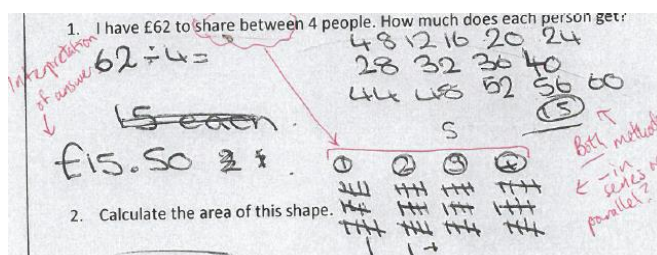 1. I have £62 to share between 4 people. How much does each person get?
Interpretation
of answer
62 ÷ 4 =
4 8 12 16 20 24
28 32 36 40
44 48 52 56 60
15
15 each
£15.50
5
1 2 3 4
Both methods
in
series
parallel?
2. Calculate the area of this shape.